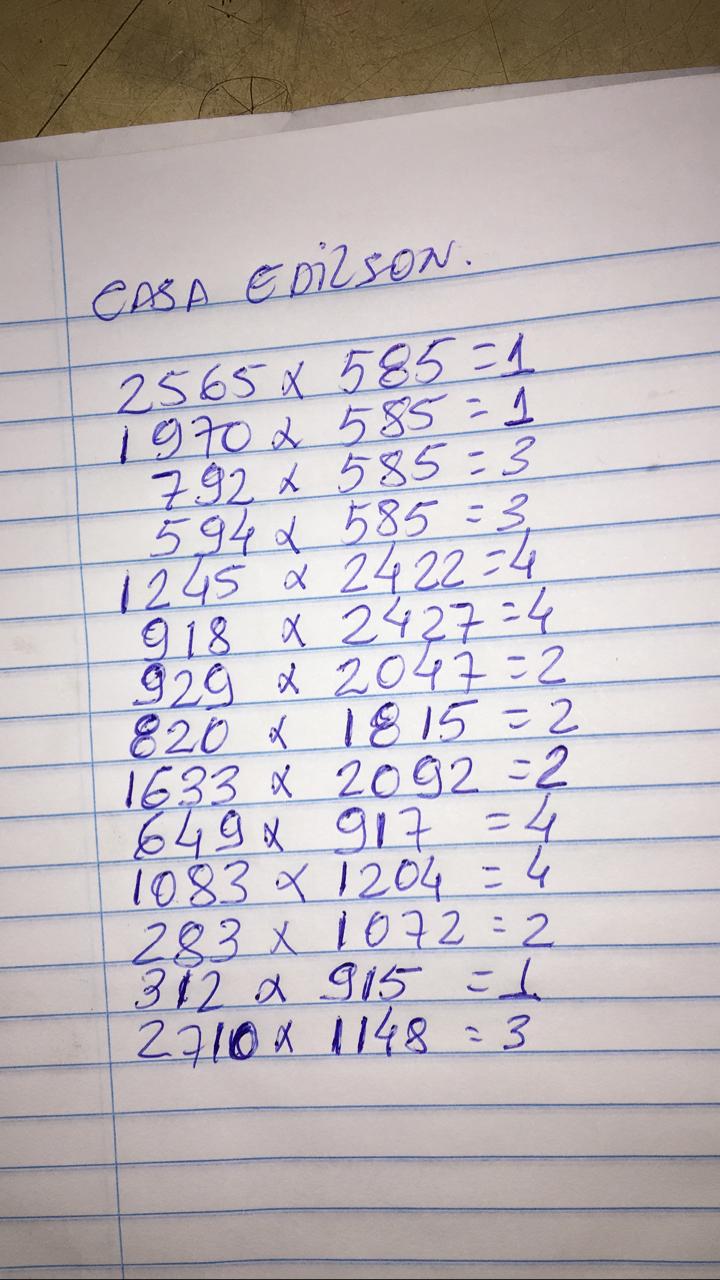 CASA EDILSON.
2565 x 585 = 1
1970 x 585 = 1
792 x 585 = 3
594 x 585 = 3
1245 x 2422 = 4
918 x 2427 = 4
929 x 2047 = 2
820 x 1815 = 2
1633 x 2092 = 2
649 x 917 = 4
1083 x 1204 = 4
283 x 1072 = 2
312 x 915 = 1
2710 x 1148 = 3